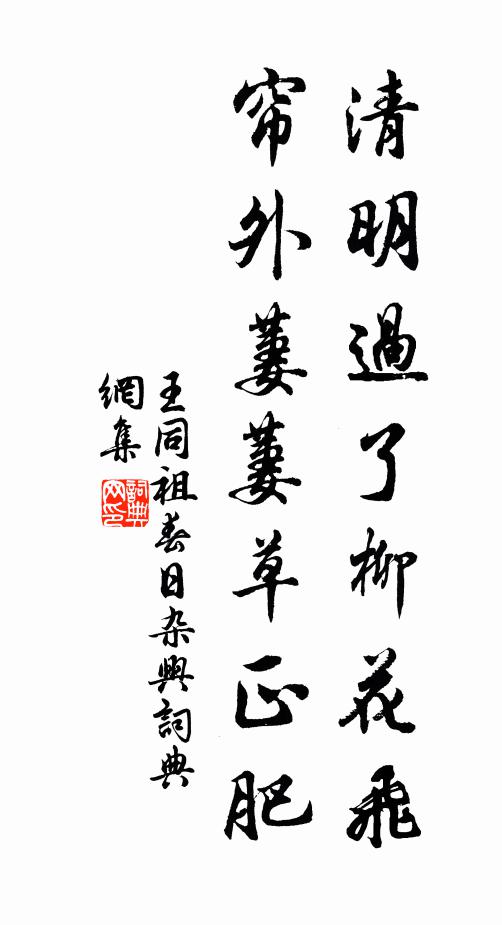 清明過了柳花飛
帘外萋萋草正肥
王同祖春日杂興詞典
網集
詞典
网印